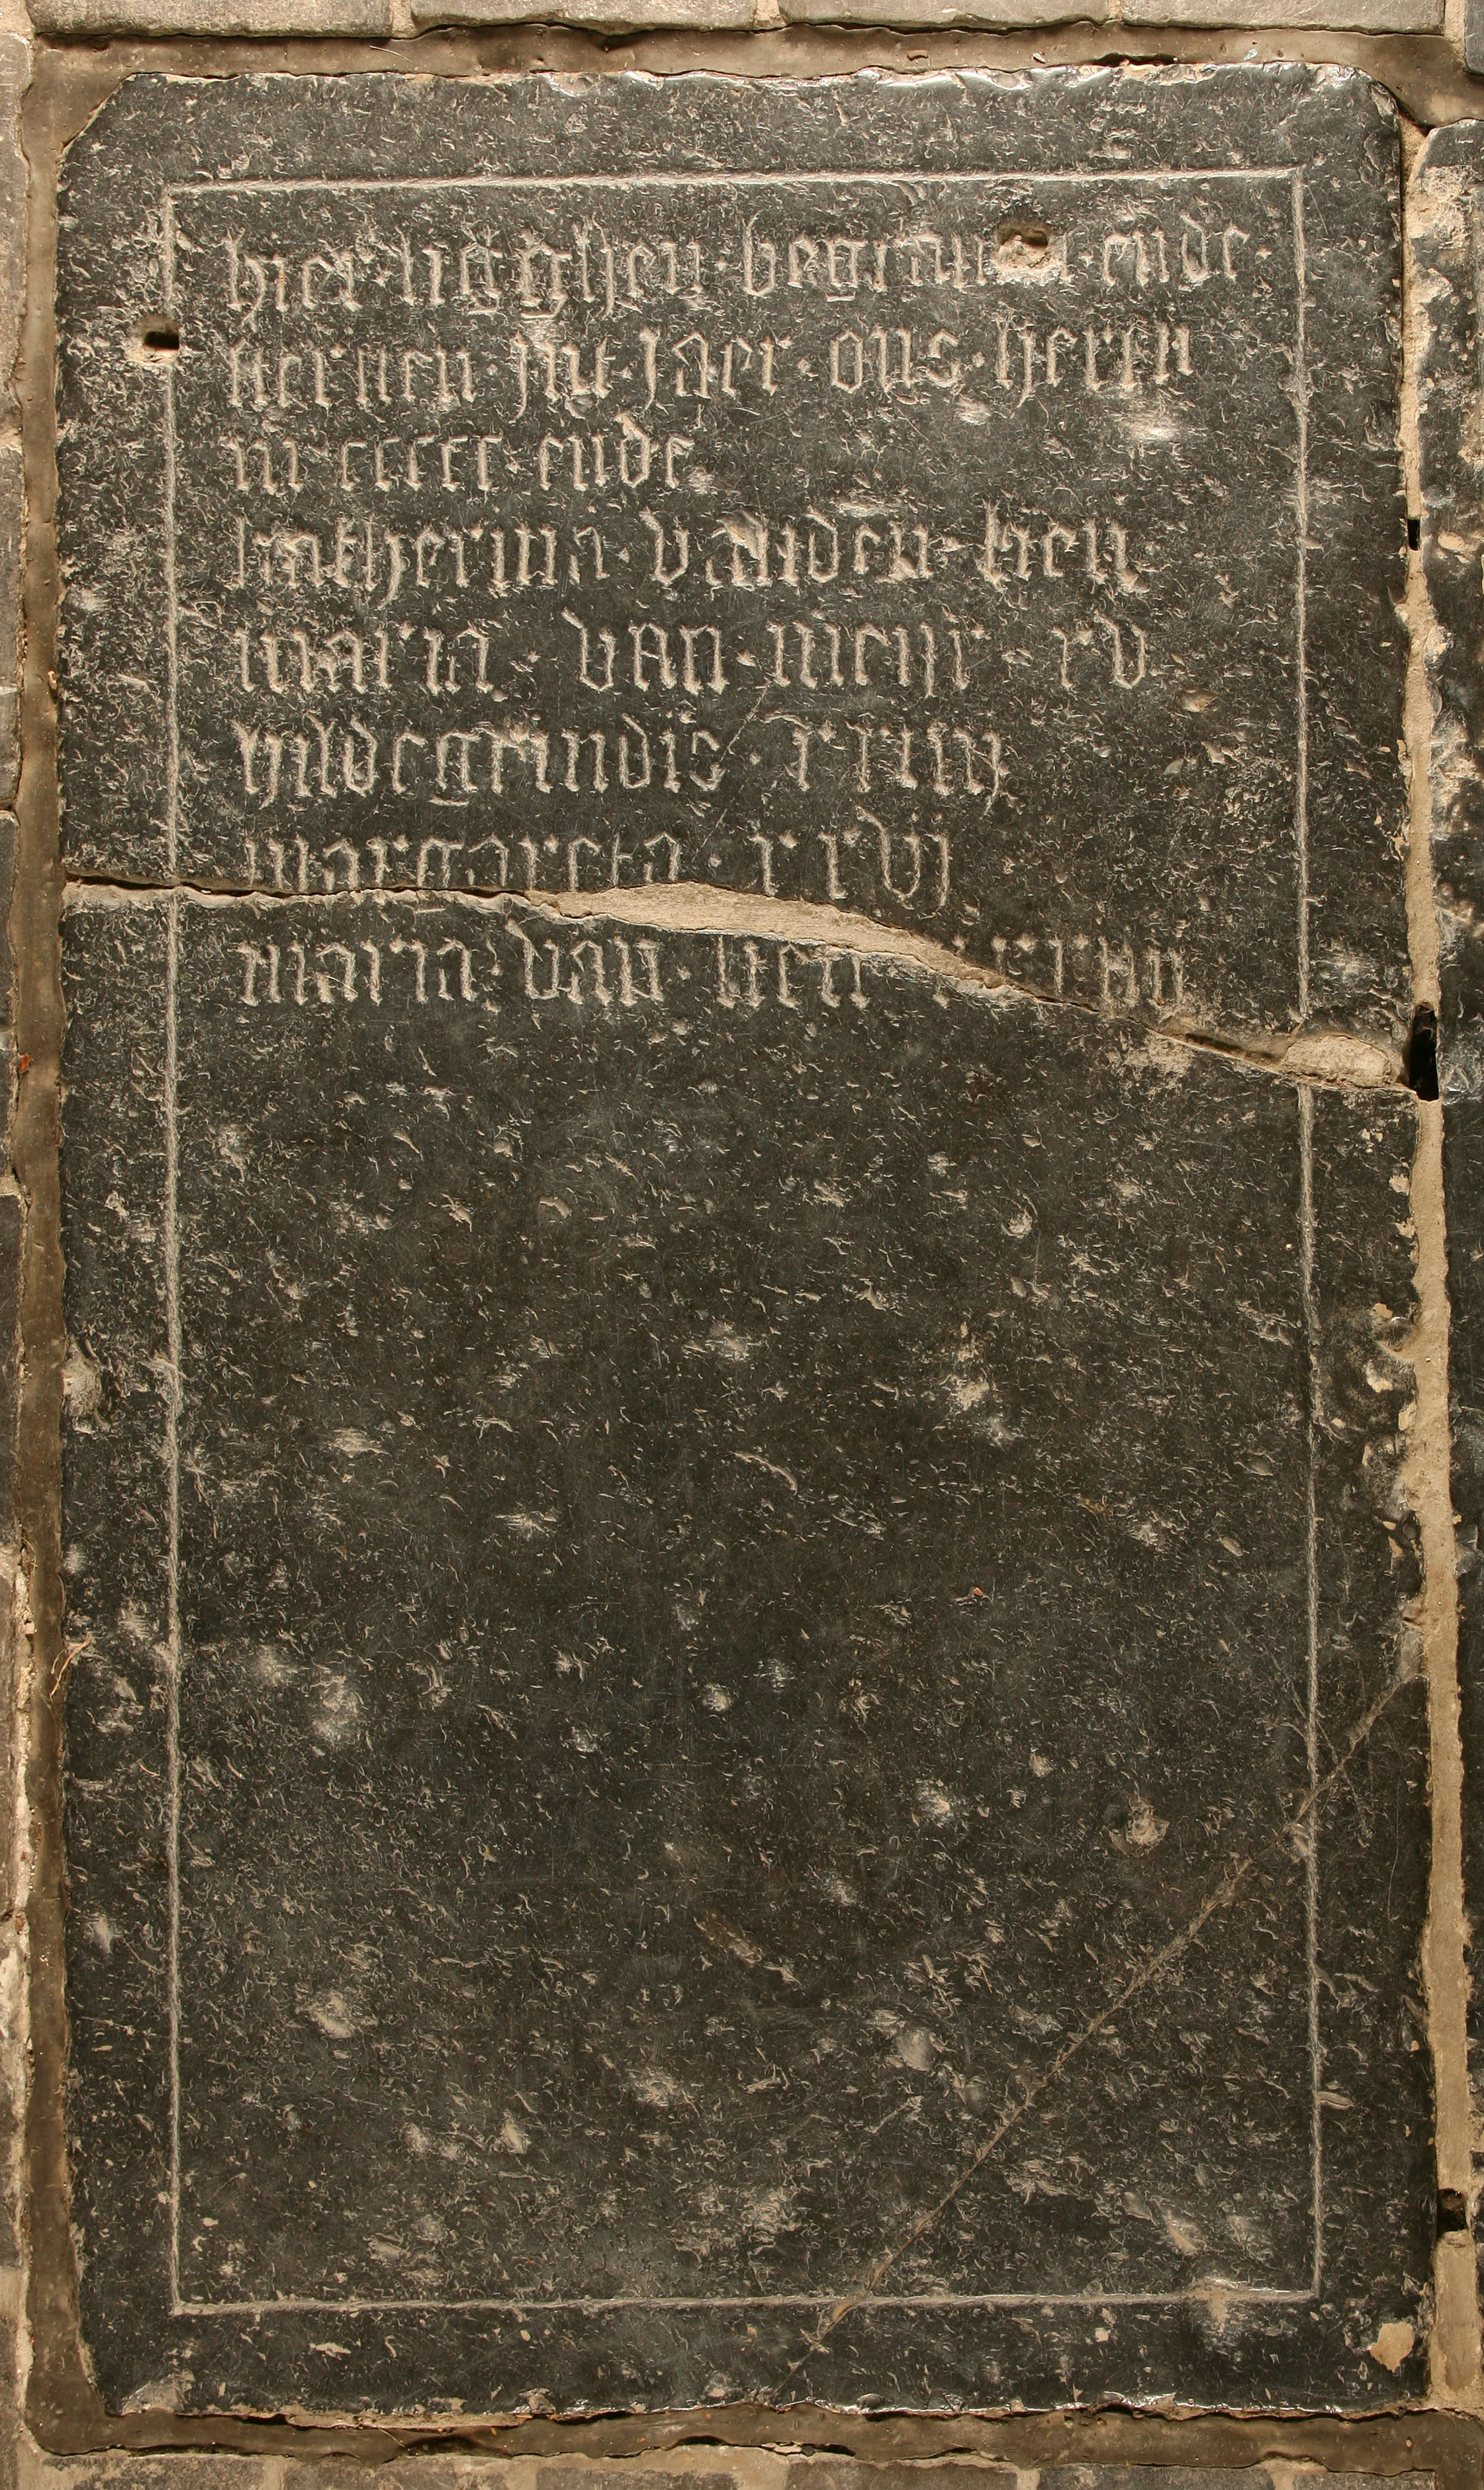 hier · ligghen · begrauen · ende ·
steruen · int · jaer · ons · heren
m · ccccc · ende
katherina · vanden · lien
maria · van · · xv
hildegrindis · xxiiij
margareta · xxvij
maria · van · lien ·